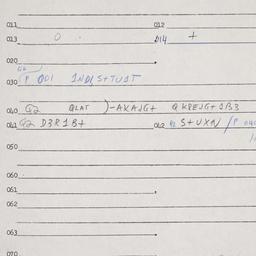 011 012
013 0 014 +
020
030 P 001 1NDS+TUST
040 Q2 QLAT )-AXAJG+ QKPEJG+1B3
041 Q2 D3R1B+ 042 S+UXN /P 040
050
060
061
062
063
070